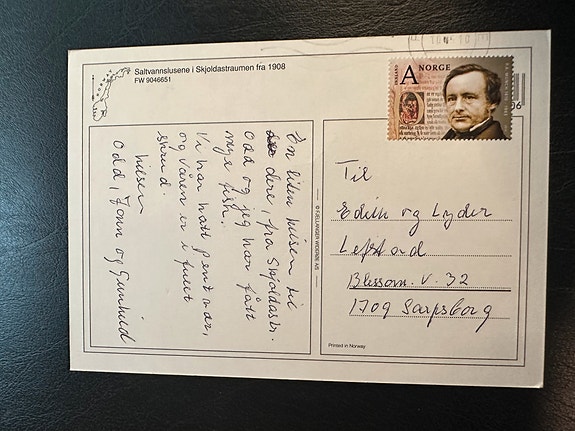 Saltvannslusene i Skjoldastraumen fra 1908
FW 9046651
En liten hilsen til
dere, fra Skjoldastr.
Odd og jeg har fått
mye fisk.
Vi har hatt pent vær,
og våren er i fullt
skrud.
hilsen
Odd, Tonn og Gunhild
© FJELLANGER WIDERØE AS
A NORGE
INNLAND
06
Til
Edith og Lyder
Leftad
V. 32
1709 Sarpsborg
Printed in Norway